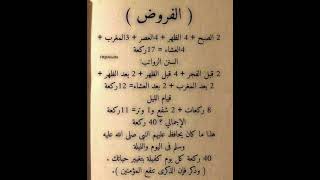 ( الفروض )
2 الصبح + 4 الظهر + 4العصر + 3المغرب +
4العشاء = 17ركعة
السنن الرواتب:
2 قبل الفجر + 4 قبل الظهر + 2 بعد الظهر +
2 بعد المغرب + 2 بعد العشاء= 12ركعة
قيام الليل
8 ركعات + 2 شفع و1 وتر= 11ركعة
الإجمالي ؟ 40 ركعة
هذا ما كان يحافظ عليهم النبي صلى الله عليه
وسلم فى اليوم والليلة
40 ركعة كل يوم كفيلة بتغيير حياتك .
( وذكر فإن الذكرى تنفع المؤمنين ).